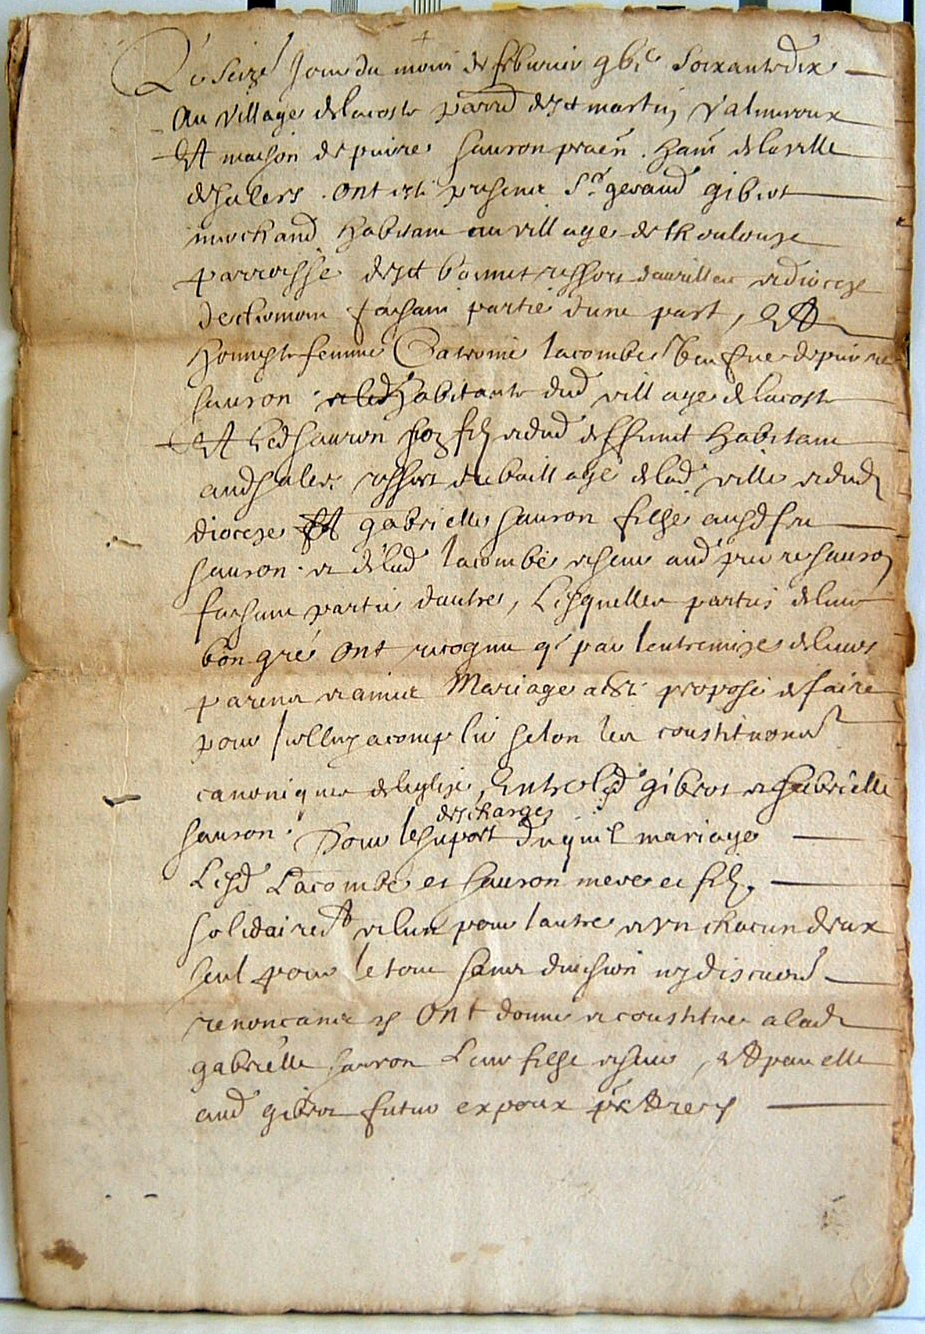 Le seize Jour du mois de febvrier gbic soixante dix
Au village de lacoste parrd de st martin Valmeroux
Et maison de pierre sauron pnt habitant de la ville
de salers. Ont esté presents Sr geraud gibrot
marchand habitant au village de
parroisse de st bonnet ressort daurillac et dioceze
de clermon faisant partie dune part, Et
honneste femme lacombe veufve de pierre
sauron habitante dud village de lacoste
Et led sauron son fils et dud deffunt habitant
aud salers ressort du baillage de lad ville et dud
dioceze Et gabrielle sauron filhe aud feu
sauron et de lad lacombe et seur aud pierre sauron
faisant partie dautre, Lesquelles parties de leur
bon gré ont recognu q par lentremize de leurs
parens et amis Mariage a esté proposé de faire
pour Icelluy acomplir selon les constitutions
canoniques de leglize, Entre led gibrot et gabrielle
sauron. Pour le suport descharges duquel mariage
Lesd Lacombe et sauron mere et fils
solidairemt et lun pour lautre et un chacun deux
seul pour le tout sans division ny discution
renoncant ont donné et constitué a lad
gabrielle sauron Leur filhe et seur, Et par elle
aud gibrot futur expoux